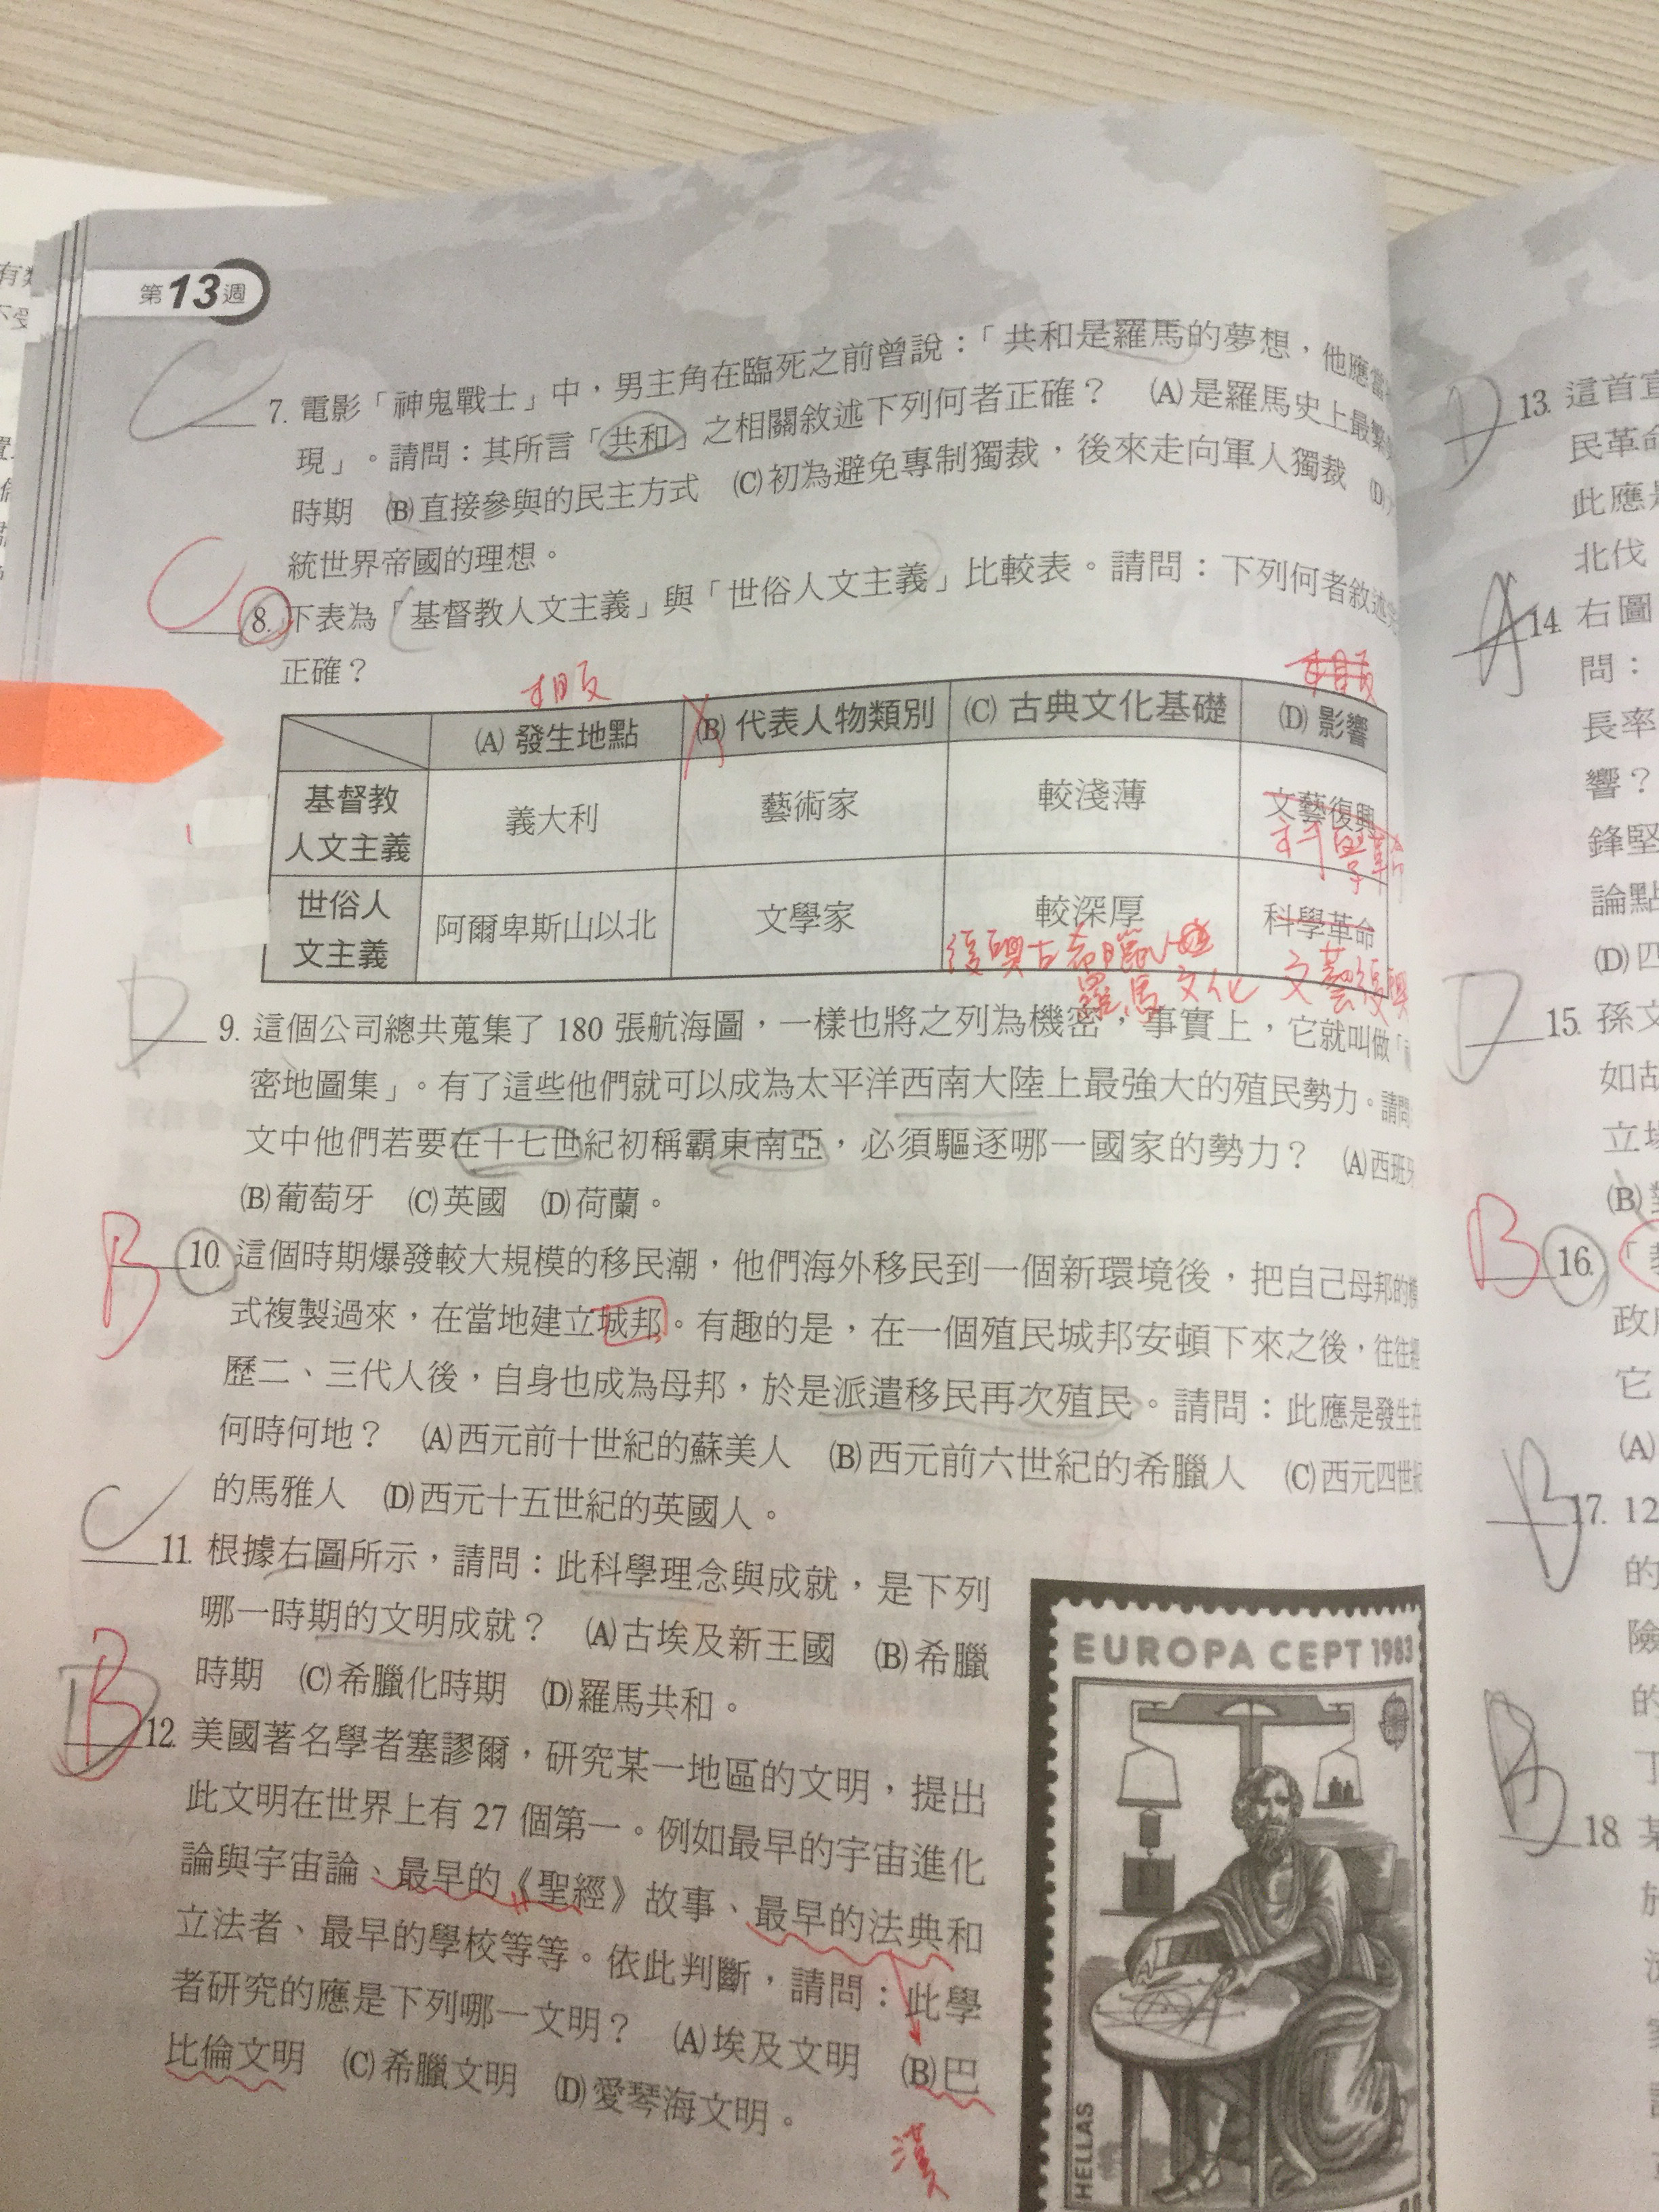 第13週
C
7. 電影「神鬼戰士」中，男主角在臨死之前曾說：「共和是羅馬的夢想，他應當
現」。請問：其所言「共和」之相關敘述下列何者正確？　(A)是羅馬史上最繁
時期　(B)直接參與的民主方式　(C)初為避免專制獨裁，後來走向軍人獨裁　(D)
統世界帝國的理想。
C
8. 下表為「基督教人文主義」與「世俗人文主義」比較表。請問：下列何者敘述
正確？
相反
相反
(A) 發生地點　(B) 代表人物類別　(C) 古典文化基礎　(D) 影響
基督教人文主義　義大利　藝術家　較淺薄　文藝復興
科學革命
世俗人文主義　阿爾卑斯山以北　文學家　較深厚　科學革命
復興古希臘
羅馬文化　文藝復興
D
9. 這個公司總共蒐集了 180 張航海圖，一樣也將之列為機密，事實上，它就叫做「
密地圖集」。有了這些他們就可以成為太平洋西南大陸上最強大的殖民勢力。請問
文中他們若要在十七世紀初稱霸東南亞，必須驅逐哪一國家的勢力？　(A)西班牙
(B)葡萄牙　(C)英國　(D)荷蘭。
B
10. 這個時期爆發較大規模的移民潮，他們海外移民到一個新環境後，把自己母邦的模
式複製過來，在當地建立城邦。有趣的是，在一個殖民城邦安頓下來之後，往往經
歷二、三代人後，自身也成為母邦，於是派遣移民再次殖民。請問：此應是發生在
何時何地？　(A)西元前十世紀的蘇美人　(B)西元前六世紀的希臘人　(C)西元四世紀
的馬雅人　(D)西元十五世紀的英國人。
C
11. 根據右圖所示，請問：此科學理念與成就，是下列
哪一時期的文明成就？　(A)古埃及新王國　(B)希臘
時期　(C)希臘化時期　(D)羅馬共和。
B
12. 美國著名學者塞謬爾，研究某一地區的文明，提出
此文明在世界上有 27 個第一。例如最早的宇宙進化
論與宇宙論、最早的《聖經》故事、最早的法典和
立法者、最早的學校等等。依此判斷，請問：此學
者研究的應是下列哪一文明？　(A)埃及文明　(B)巴
比倫文明　(C)希臘文明　(D)愛琴海文明。
漢
EUROPA CEPT 1983
HELLAS
D
13. 這首
民革命
此應是
北伐
A
14. 右圖
問：
長率
響？
鋒堅
論點
(D)四
D
15. 孫文
如
立場
(B)
B
16. 「
政府
它
(A)
B
17. 12
的
險
的
B
18. 某